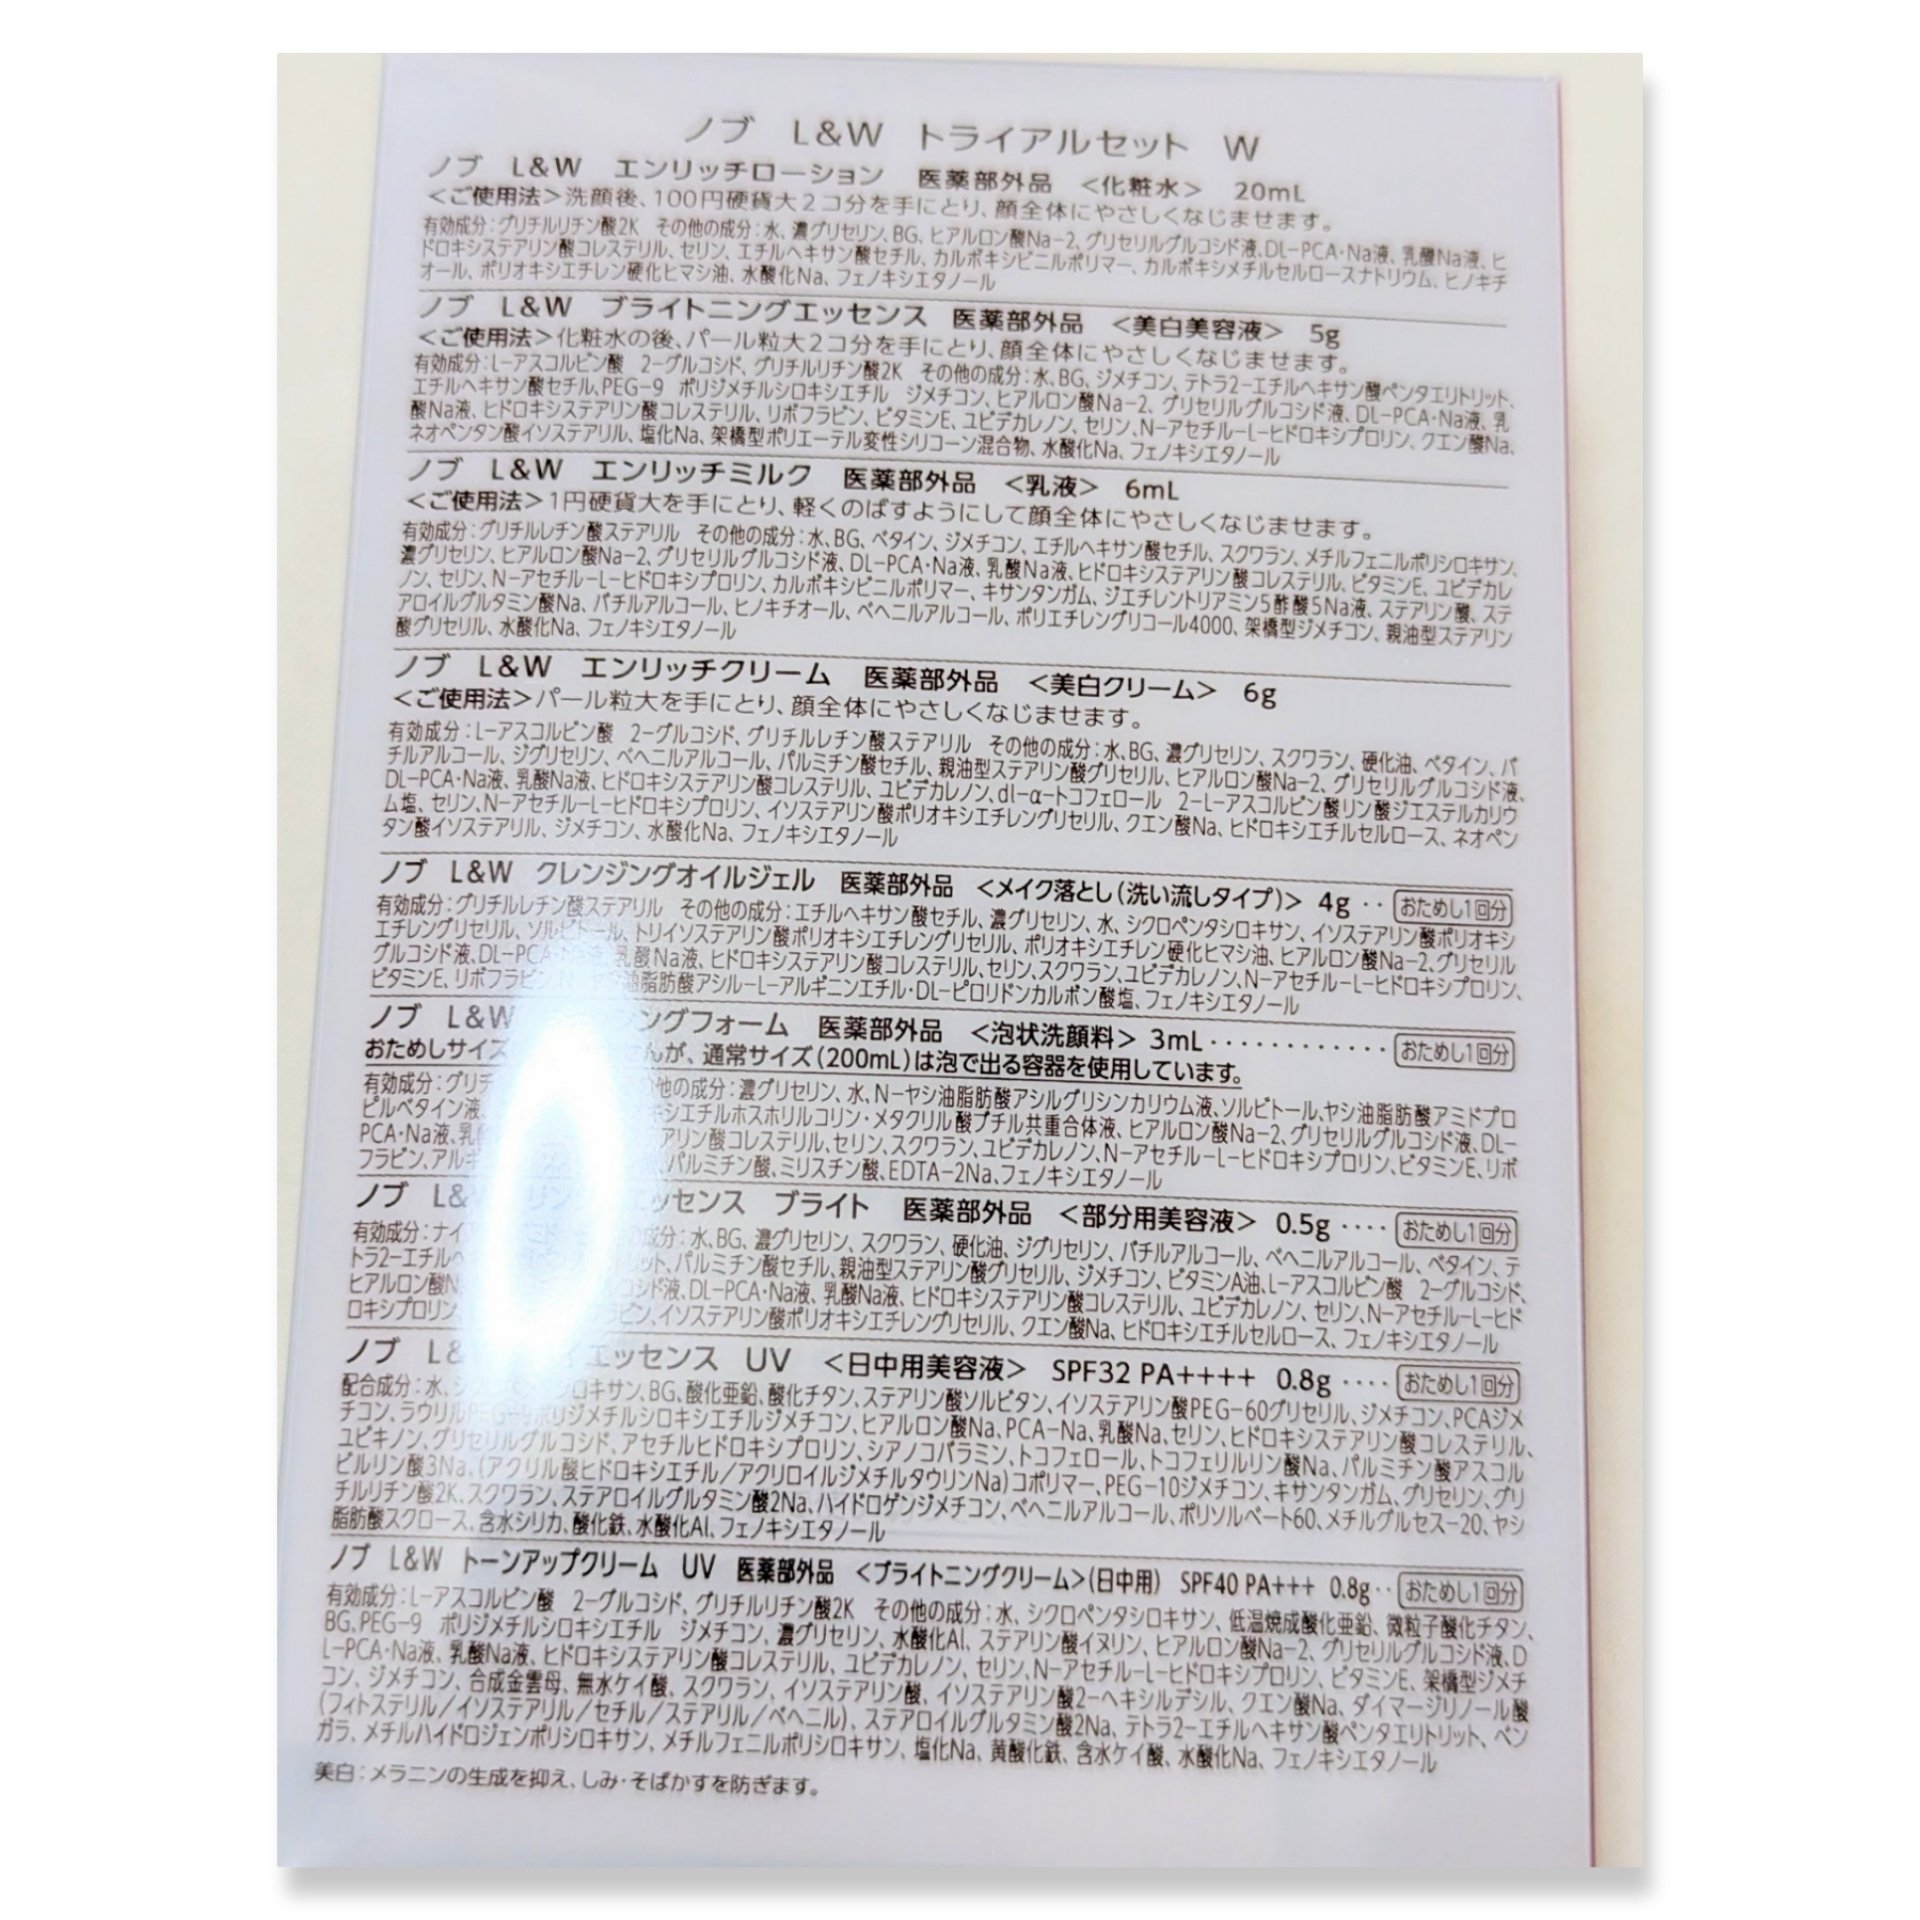 ノブ L&W トライアルセット W
ノブ L&W エンリッチローション 医薬部外品 <化粧水> 20mL
<ご使用法>洗顔後、100円硬貨大2コ分を手にとり、顔全体にやさしくなじませます。
有効成分:グリチルリチン酸2K その他の成分:水、濃グリセリン、BG、ヒアルロン酸Na-2、グリセリルグルコシド液、DL-PCA・Na液、乳酸Na液、ヒ
ドロキシステアリン酸コレステリル、セリン、エチルヘキサン酸セチル、カルボキシビニルポリマー、カルボキシメチルセルロースナトリウム、ヒノキチ
オール、ポリオキシエチレン硬化ヒマシ油、水酸化Na、フェノキシエタノール
ノブ L&W ブライトニングエッセンス 医薬部外品 <美白美容液> 5g
<ご使用法>化粧水の後、パール粒大2コ分を手にとり、顔全体にやさしくなじませます。
有効成分:L-アスコルビン酸 2-グルコシド、グリチルリチン酸2K その他の成分:水、BG、ジメチコン、テトラ2-エチルヘキサン酸ペンタエリトリット、
エチルヘキサン酸セチル、PEG-9 ポリジメチルシロキシエチル ジメチコン、ヒアルロン酸Na-2、グリセリルグルコシド液、DL-PCA・Na液、乳
酸Na液、ヒドロキシステアリン酸コレステリル、リボフラビン、ビタミンE、ユビデカレノン、セリン、N-アセチル-L-ヒドロキシプロリン、クエン酸Na、
ネオペンタン酸イソステアリル、塩化Na、架橋型ポリエーテル変性シリコーン混合物、水酸化Na、フェノキシエタノール
ノブ L&W エンリッチミルク 医薬部外品 <乳液> 6mL
<ご使用法>1円硬貨大を手にとり、軽くのばすようにして顔全体にやさしくなじませます。
有効成分:グリチルレチン酸ステアリル その他の成分:水、BG、ベタイン、ジメチコン、エチルヘキサン酸セチル、スクワラン、メチルフェニルポリシロキサン、
濃グリセリン、ヒアルロン酸Na-2、グリセリルグルコシド液、DL-PCA・Na液、乳酸Na液、ヒドロキシステアリン酸コレステリル、ビタミンE、ユビデカレ
ノン、セリン、N-アセチル-L-ヒドロキシプロリン、カルボキシビニルポリマー、キサンタンガム、ジエチレントリアミン5酢酸5Na液、ステアリン酸、ステ
アロイルグルタミン酸Na、バチルアルコール、ヒノキチオール、ベヘニルアルコール、ポリエチレングリコール4000、架橋型ジメチコン、親油型ステアリン
酸グリセリル、水酸化Na、フェノキシエタノール
ノブ L&W エンリッチクリーム 医薬部外品 <美白クリーム> 6g
<ご使用法>パール粒大を手にとり、顔全体にやさしくなじませます。
有効成分:L-アスコルビン酸 2-グルコシド、グリチルレチン酸ステアリル その他の成分:水、BG、濃グリセリン、スクワラン、硬化油、ベタイン、バ
チルアルコール、ジグリセリン、ベヘニルアルコール、パルミチン酸セチル、親油型ステアリン酸グリセリル、ヒアルロン酸Na-2、グリセリルグルコシド液、
DL-PCA・Na液、乳酸Na液、ヒドロキシステアリン酸コレステリル、ユビデカレノン、dl-α-トコフェロール 2-L-アスコルビン酸リン酸ジエステルカリウ
ム塩、セリン、N-アセチル-L-ヒドロキシプロリン、イソステアリン酸ポリオキシエチレングリセリル、クエン酸Na、ヒドロキシエチルセルロース、ネオペン
タン酸イソステアリル、ジメチコン、水酸化Na、フェノキシエタノール
ノブ L&W クレンジングオイルジェル 医薬部外品 <メイク落とし(洗い流しタイプ)> 4g ‥ おためし1回分
有効成分:グリチルレチン酸ステアリル その他の成分:エチルヘキサン酸セチル、濃グリセリン、水、シクロペンタシロキサン、イソステアリン酸ポリオキシ
エチレングリセリル、ソルビトール、トリイソステアリン酸ポリオキシエチレングリセリル、ポリオキシエチレン硬化ヒマシ油、ヒアルロン酸Na-2、グリセリル
グルコシド液、DL-PCA・Na液、乳酸Na液、ヒドロキシステアリン酸コレステリル、セリン、スクワラン、ユビデカレノン、N-アセチル-L-ヒドロキシプロリン、
ビタミンE、リボフラビン、N-ヤシ油脂肪酸アシル-L-アルギニンエチル・DL-ピロリドンカルボン酸塩、フェノキシエタノール
ノブ L&W ングフォーム 医薬部外品 <泡状洗顔料> 3mL ············ おためし1回分
おためしサイズ せんが、通常サイズ(200mL)は泡で出る容器を使用しています。
有効成分:グリチ の他の成分:濃グリセリン、水、N-ヤシ油脂肪酸アシルグリシンカリウム液、ソルビトール、ヤシ油脂肪酸アミドプロ
ピルベタイン液、 キシエチルホスホリルコリン・メタクリル酸ブチル共重合体液、ヒアルロン酸Na-2、グリセリルグルコシド液、DL-
PCA・Na液、乳 アリン酸コレステリル、セリン、スクワラン、ユビデカレノン、N-アセチル-L-ヒドロキシプロリン、ビタミンE、リボ
フラビン、アルギ パルミチン酸、ミリスチン酸、EDTA-2Na、フェノキシエタノール
ノブ L& エッセンス ブライト 医薬部外品 <部分用美容液> 0.5g ···· おためし1回分
有効成分:ナイ 成分:水、BG、濃グリセリン、スクワラン、硬化油、ジグリセリン、バチルアルコール、ベヘニルアルコール、ベタイン、テ
トラ2-エチルヘ リット、パルミチン酸セチル、親油型ステアリン酸グリセリル、ジメチコン、ビタミンA油、L-アスコルビン酸 2-グルコシド、
ヒアルロン酸N コシド液、DL-PCA・Na液、乳酸Na液、ヒドロキシステアリン酸コレステリル、ユビデカレノン、セリン、N-アセチル-L-ヒド
ロキシプロリン、 ビン、イソステアリン酸ポリオキシエチレングリセリル、クエン酸Na、ヒドロキシエチルセルロース、フェノキシエタノール
ノブ L& エッセンス UV <日中用美容液> SPF32 PA++++ 0.8g ···· おためし1回分
配合成分:水、シクロペンタシロキサン、BG、酸化亜鉛、酸化チタン、ステアリン酸ソルビタン、イソステアリン酸PEG-60グリセリル、ジメチコン、PCAジメ
チコン、ラウリルPEG-9ポリジメチルシロキシエチルジメチコン、ヒアルロン酸Na、PCA-Na、乳酸Na、セリン、ヒドロキシステアリン酸コレステリル、
ユビキノン、グリセリルグルコシド、アセチルヒドロキシプロリン、シアノコバラミン、トコフェロール、トコフェリルリン酸Na、パルミチン酸アスコル
ビルリン酸3Na、(アクリル酸ヒドロキシエチル/アクリロイルジメチルタウリンNa)コポリマー、PEG-10ジメチコン、キサンタンガム、グリセリン、グリ
チルリチン酸2K、スクワラン、ステアロイルグルタミン酸2Na、ハイドロゲンジメチコン、ベヘニルアルコール、ポリソルベート60、メチルグルセス-20、ヤシ
脂肪酸スクロース、含水シリカ、酸化鉄、水酸化Al、フェノキシエタノール
ノブ L&W トーンアップクリーム UV 医薬部外品 <ブライトニングクリーム>(日中用) SPF40 PA+++ 0.8g ‥ おためし1回分
有効成分:L-アスコルビン酸 2-グルコシド、グリチルリチン酸2K その他の成分:水、シクロペンタシロキサン、低温焼成酸化亜鉛、微粒子酸化チタン、
BG、PEG-9 ポリジメチルシロキシエチル ジメチコン、濃グリセリン、水酸化Al、ステアリン酸イヌリン、ヒアルロン酸Na-2、グリセリルグルコシド液、D
L-PCA・Na液、乳酸Na液、ヒドロキシステアリン酸コレステリル、ユビデカレノン、セリン、N-アセチル-L-ヒドロキシプロリン、ビタミンE、架橋型ジメチ
コン、ジメチコン、合成金雲母、無水ケイ酸、スクワラン、イソステアリン酸、イソステアリン酸2-ヘキシルデシル、クエン酸Na、ダイマージリノール酸
(フィトステリル/イソステアリル/セチル/ステアリル/ベヘニル)、ステアロイルグルタミン酸2Na、テトラ2-エチルヘキサン酸ペンタエリトリット、ベン
ガラ、メチルハイドロジェンポリシロキサン、メチルフェニルポリシロキサン、塩化Na、黄酸化鉄、含水ケイ酸、水酸化Na、フェノキシエタノール
美白:メラニンの生成を抑え、しみ・そばかすを防ぎます。